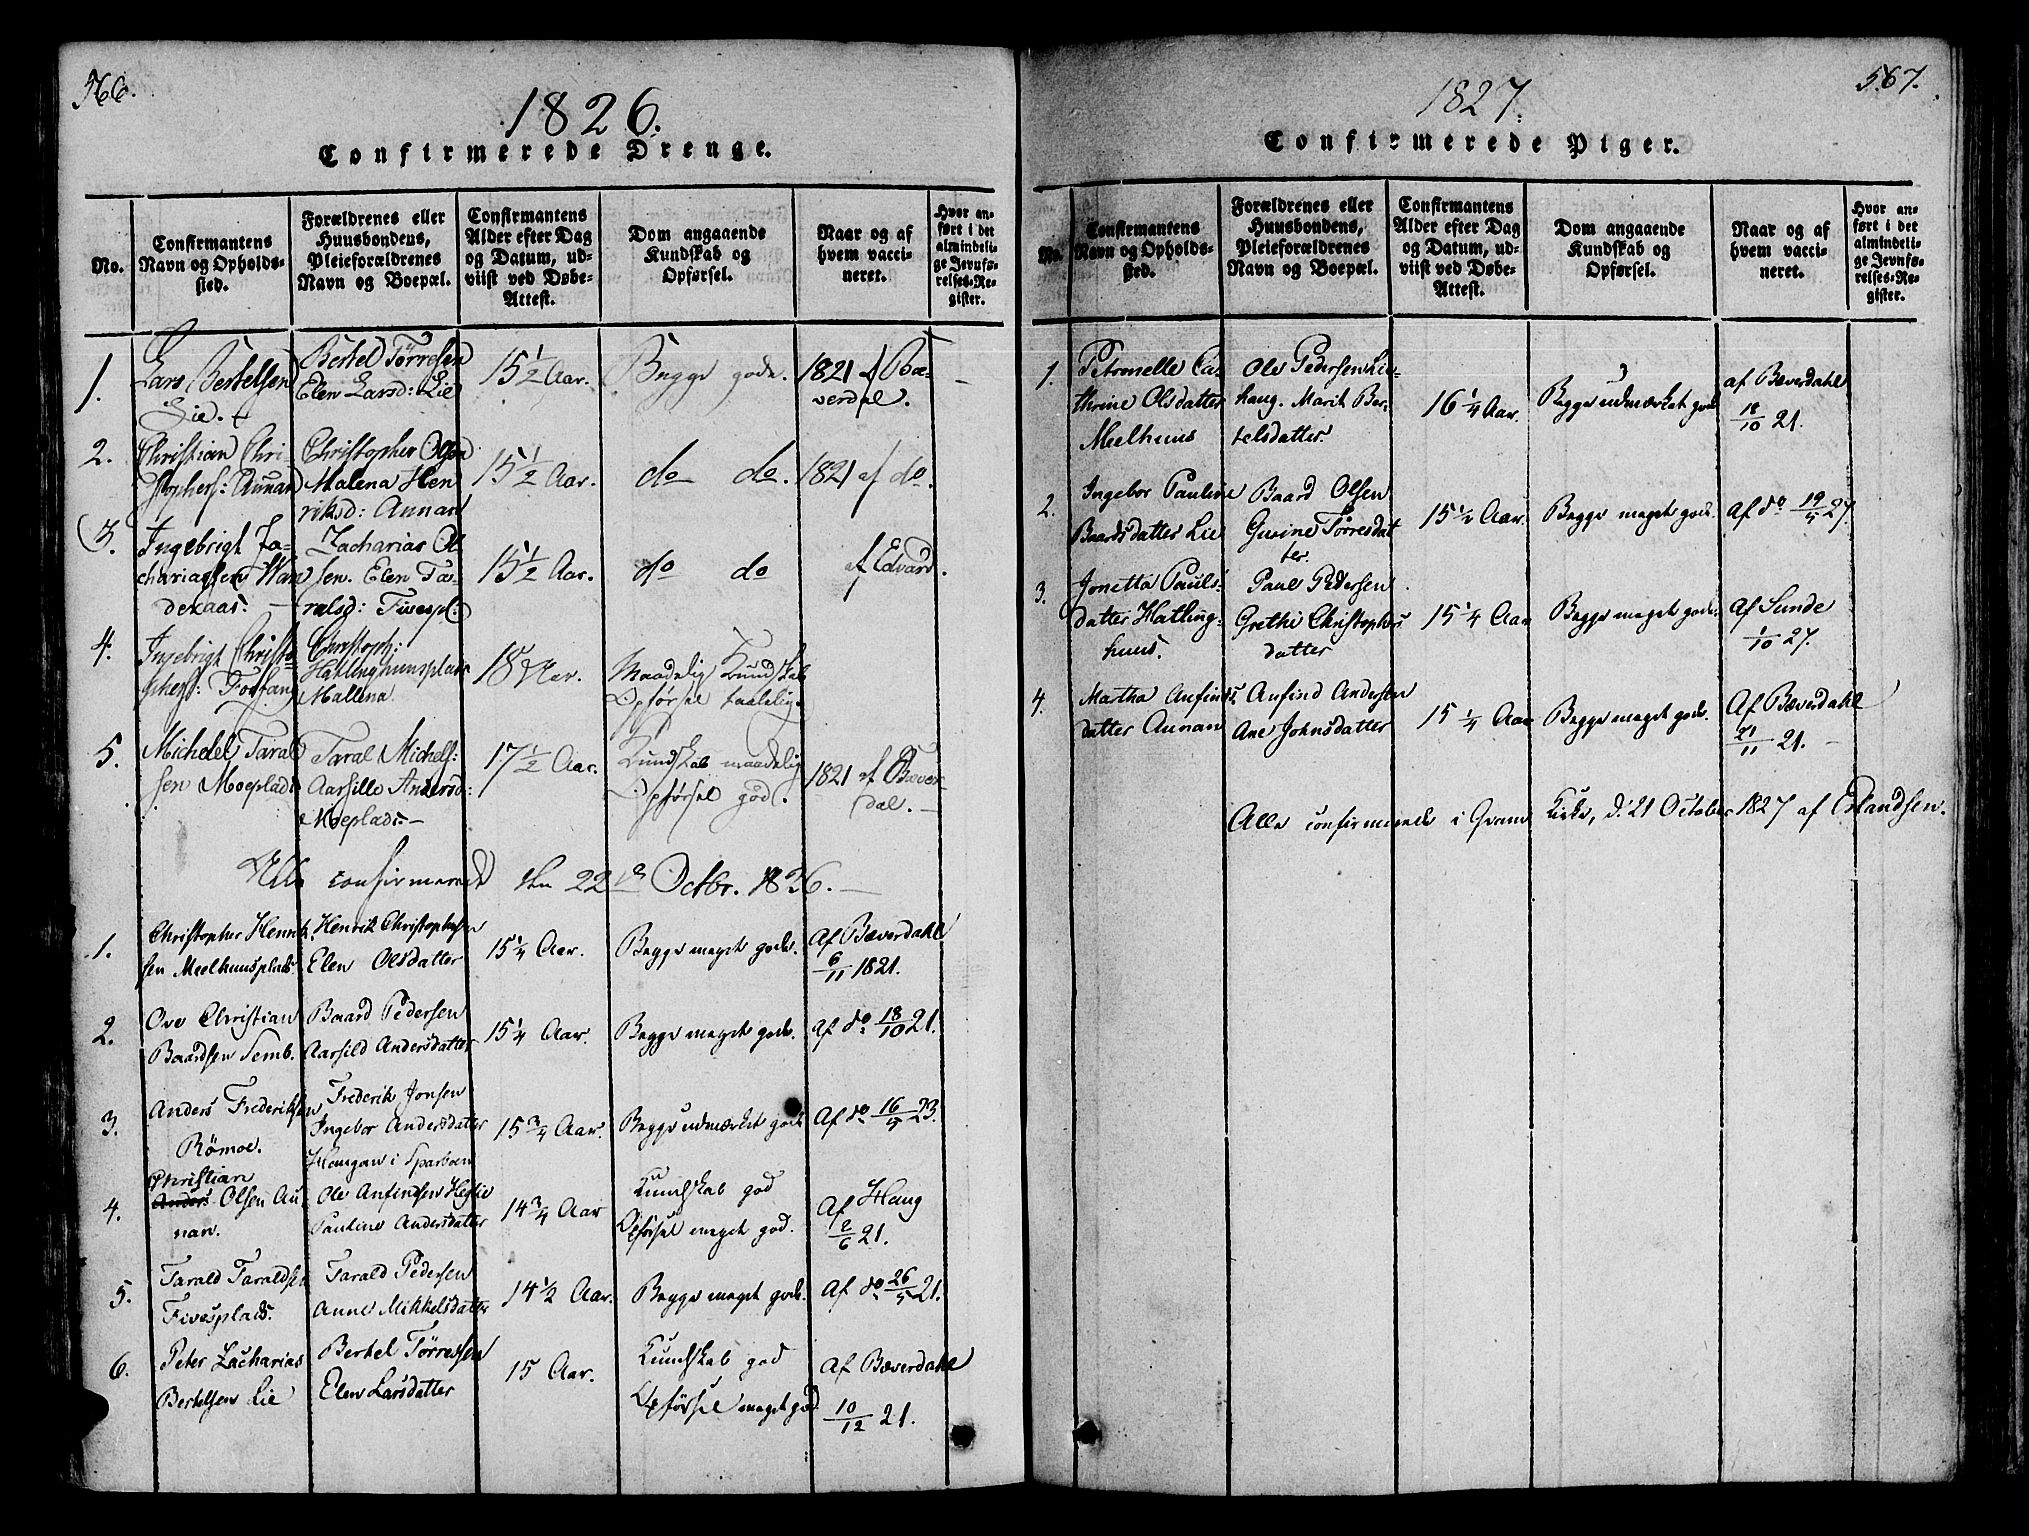 566.
1826.
Confirmerede Drenge.
No.
Confirmantens Navn og Opholdssted.
Forældrenes eller Huusbondens, Pleieforældrenes Navn og Boepæl.
Confirmantens Alder efter Dag og Datum, udviist ved Døbe-Attest.
Dom angaaende Kundskab og Opførsel.
Naar og af hvem vaccineret.
Hvor anført i det almindelige Jevnførelses-Register.
1.
Lars Bertelsen
Lie. +
Bertel Törresen
Elen Larsd: Lie
15 1/2 Aar.
Begge gode.
1821 af Bæ-
verdal.
2.
Christian Chri-
stophers: Aunan
Christopher Olsen
Malena Hen
riksd: Aunan
15 1/2 Aar.
do do.
1821 af do.
3.
Ingebrigt Za-
chariassen Wan
dekaas.
Zacharias Ol
sen. Elen Ta-
ralsd: Fivespl:
15 1/2 Aar.
do do
af Edvard.
4.
Ingebrigt Christo-
phers: Fosfang
Christoph:
Hatlinghuusplads
Mallena
18 Aar.
Maadelig Kundskab
Opførsel taalelig.
5.
Michel Taral
sen Moeplads
Taral Michels:
Aarsille Andersd:
Moeplads.
17 1/2 Aar.
Kundskab maadelig
Opførsel god.
1821 af Bæver
dal.
Alle confirmerede den 22de Octbr. 1826.
1.
Christopher Henrik
sen Meelhuusplads.
Henrik Christophersen
Elen Olsdatter
15 1/4 Aar.
Begge meget gode.
Af Bæverdahl
6/11 1821.
2.
Ove Christian
Baardsen Semb.
Baard Pedersen
Aarsild Andersdatter
15 1/4 Aar.
Begge meget gode.
Af do 18/10 21.
3.
Anders Frederiksen
Römoe.
Frederik Jonsen
Ingebor Andersdatter
Haugan i Sparboen
15 3/4 Aar.
Begge udmærket gode
Af do 16/5 23.
4.
Christian
Anders Olsen Au-
nan.
Ole Anfindsen Heglie
Pauline Andersdatter
14 3/4 Aar
Kundskab god
Opførsel meget god.
Af Haug
2/6 21.
5.
Tarald Taraldsen
Fivesplads.
Tarald Pedersen
Anne Mikkelsdatter
14 1/2 Aar.
Begge meget gode.
Af do 26/5 21.
6.
Peter Zacharias
Bertelsen Lie
Bertel Törresen
Elen Larsdatter
15 Aar.
Kundskab god
Opførsel meget god
Af Bæverdahl
10/12 21.
567.
1827.
Confirmerede Piger.
No.
Confirmantens Navn og Opholdssted.
Forældrenes eller Huusbondens, Pleieforældrenes Navn og Boepæl.
Confirmantens Alder efter Dag og Datum, udviist ved Døbe-Attest.
Dom angaaende Kundskab og Opførsel.
Naar og af hvem vaccineret.
Hvor anført i det almindelige Jevnførelses-Register.
1.
Petronelle Ca-
thrine Olsdatter
Meelhuus
Ole Pedersen Lie-
haug. Marit Ber-
telsdatter.
16 1/4 Aar.
Begge udmærket gode
af Bæverdahl
18/10 21.
2.
Ingebor Pauline
Baardsdatter Lie
Baard Olsen
Gurine Törresdat
ter.
15 1/2 Aar.
Begge meget gode.
Af do 19/5 27.
3.
Jonetta Pauls-
datter Hatling-
huus.
Paul Pedersen
Grethe Christophers
datter
15 1/4 Aar
Begge meget gode.
Af Sunde
1/10 27.
4.
Martha Anfinds-
datter Aunan
Anfind Andersen
Ane Johnsdatter
15 1/4 Aar
Begge meget gode.
Af Bæverdahl
21/11 21.
Alle confirmerede i Qvam Kirke, d. 21 October 1827 af Erlandsen.